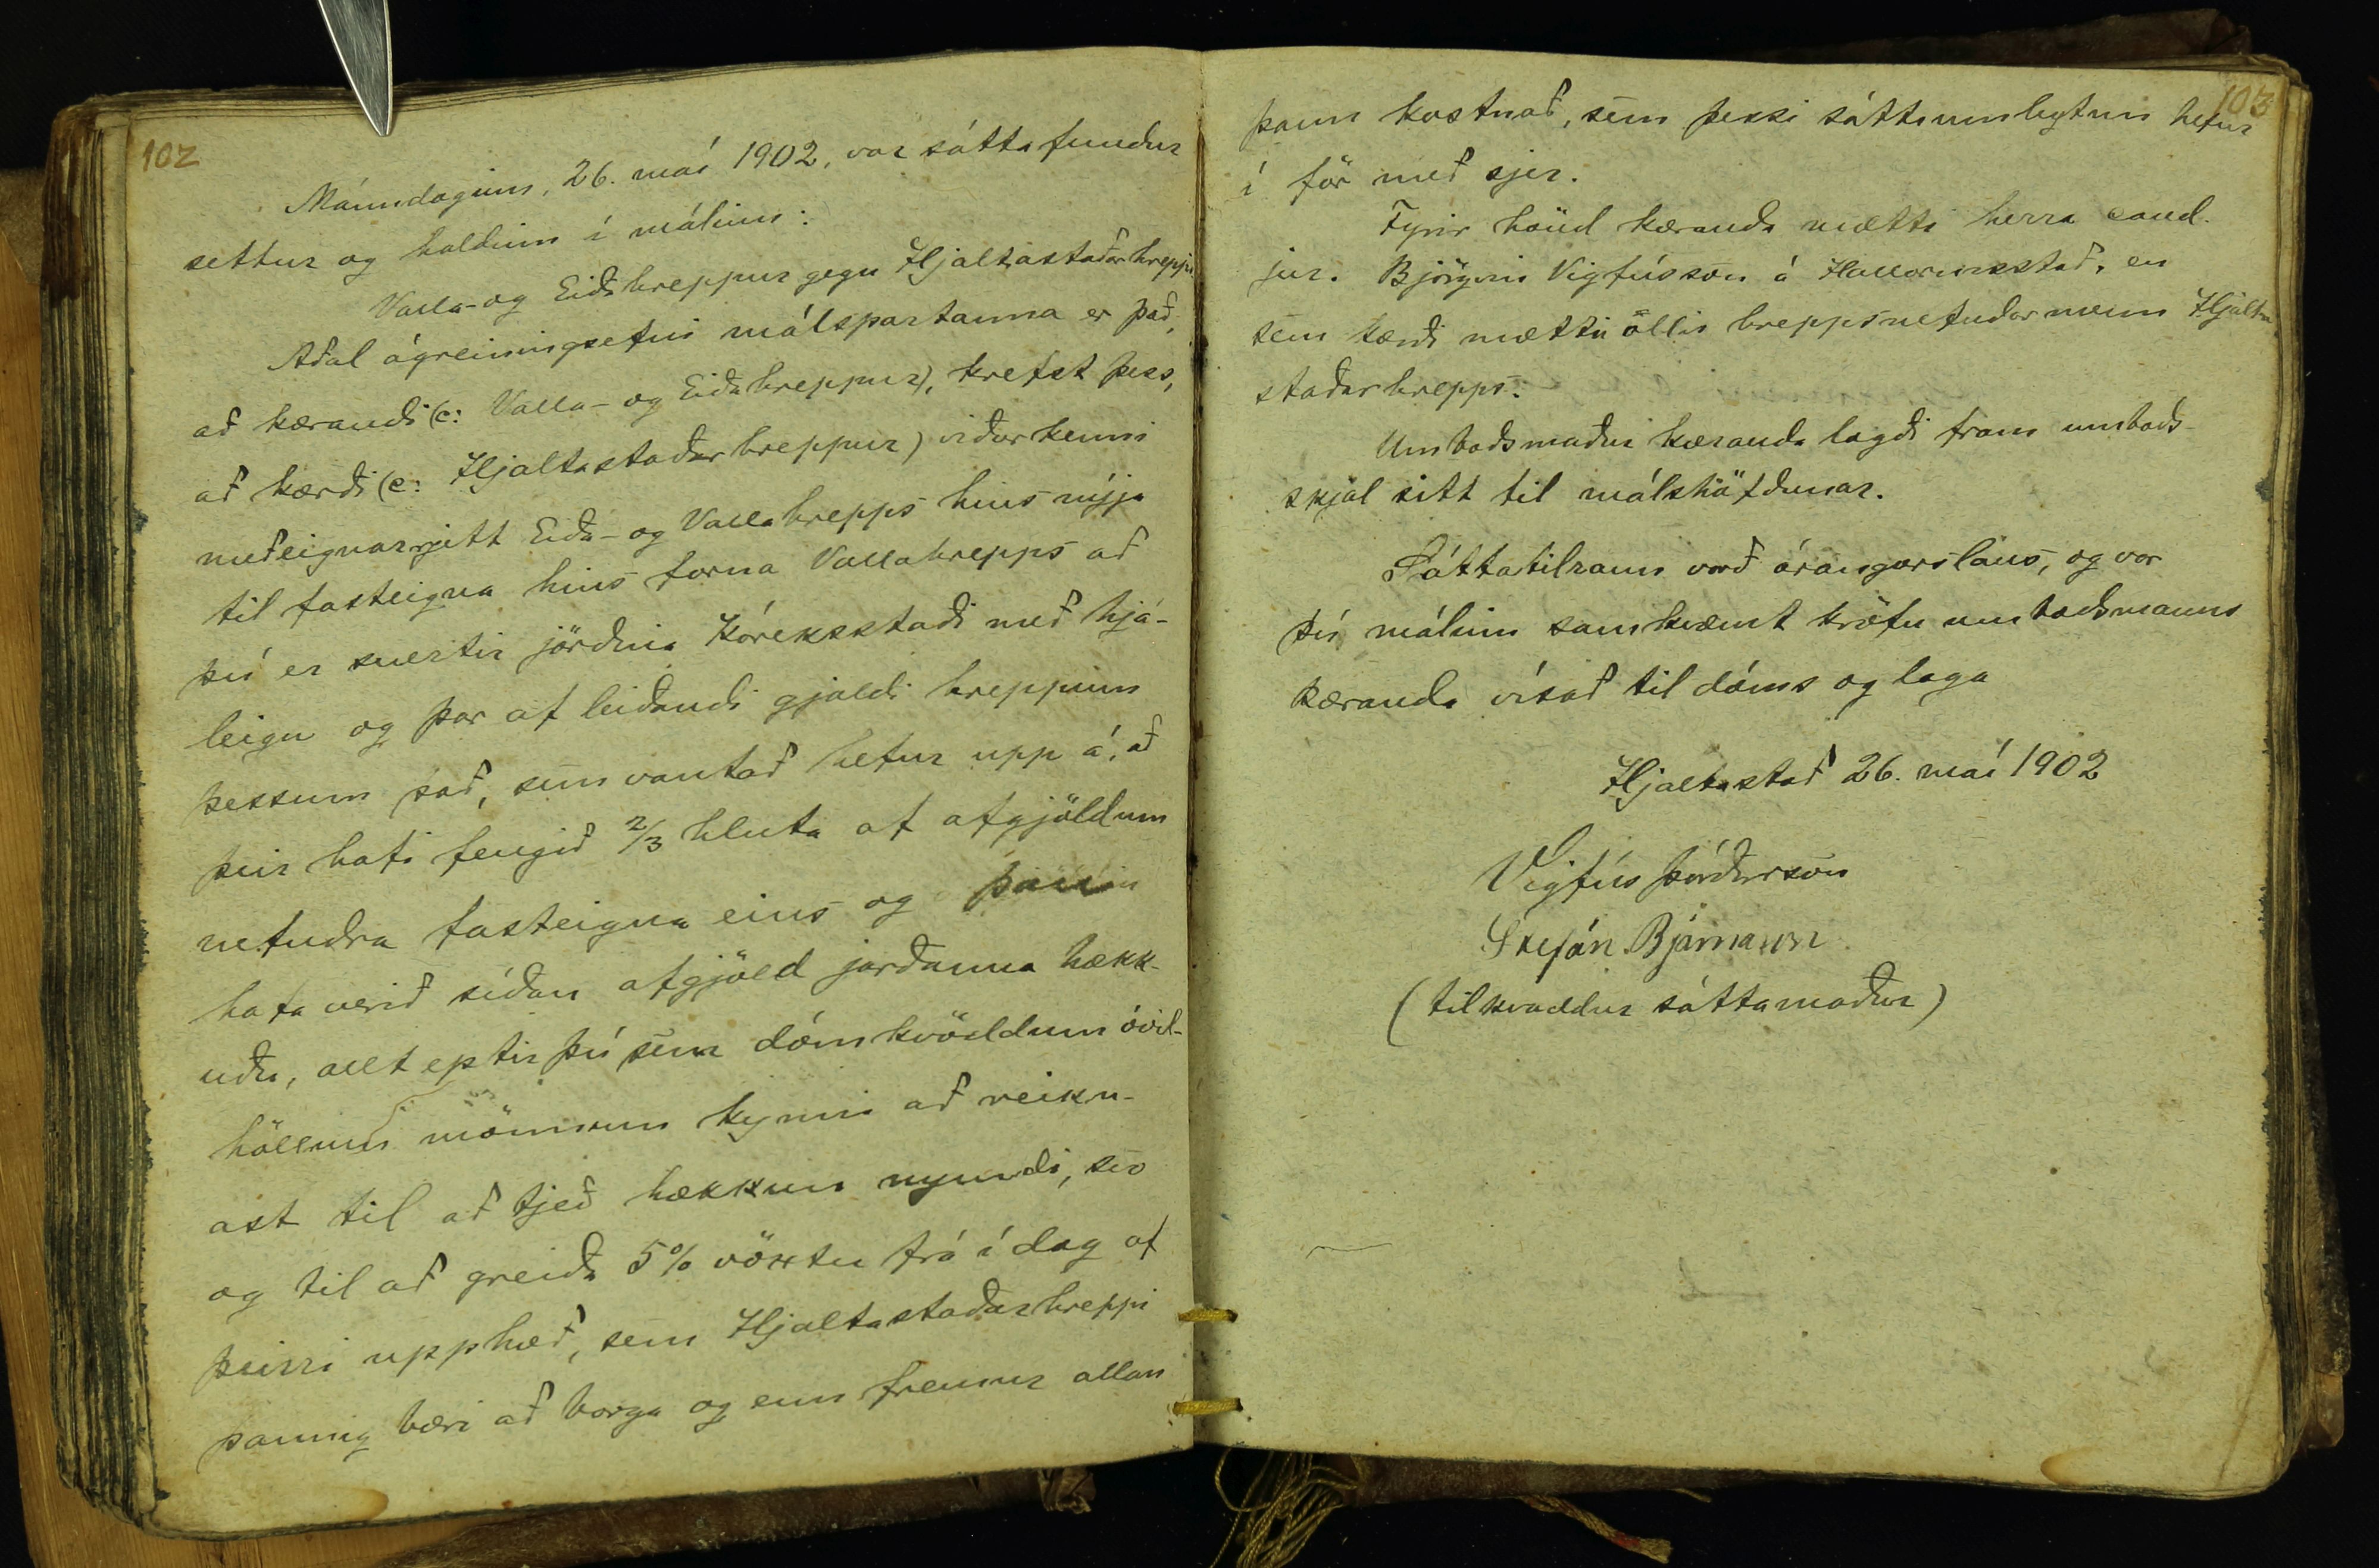 102
Mánudaginn, 26. maí 1902, var sáttafundur
settur og haldinn í málinu:
Valla- og Eiðahreppur gegn Hjaltastaðarhreppi
Aðal ágreiningsefni málspartanna er það,
að kærandi (ɔ: Valla- og Eiðahreppur), krefst þess,
að kærði (ɔ: Hjaltastaðarhreppur) viðurkenni
meðeignarrjett Eiða- og Vallahrepps hins nýja
til fasteigna hins forna Vallahrepps að
því er snertir jörðina Kóreksstaði með hjá-
leigu og þar af leiðandi gjaldi hreppum
þessum það, sem vantað hefur upp á, að
þeir hafi fengið 2/3 hluta af afgjöldum
nefndra fasteigna eins og þau
hafa verið síðan afgjöld jarðanna hækk-
uðu, allt eptir því sem dómkvöddum óvil-
höllum mönnum kynni að reikn-
ast til að tjeð hækkun nymdi, svo
og til að greiða 5% vöxtu frá í dag af
þeirri upphæð, sem Hjaltastaðarhreppi
þannig bæri að borga og enn fremur allan
103
þann kostnað, sem þessi sáttaumleytun hefur
í för með sjer.
Fyrir hönd kæranda mætti herra cand.
jur. Björgvin Vigfússon á Hallormsstað, en
sem kærði mættu allir hreppsnefndarmenn Hjalta
staðarhrepps.
Umboðsmaður kæranda lagði fram umboðs-
skjal sitt til málshöfðunar.
Sáttatilraun varð árangurslaus, og var
því málinu samkvæmt kröfu umboðsmanns
kæranda vísað til dóms og laga
Hjaltastað 26. maí 1902
Vigfús Þórðarson
Stefán Bjarnason
(tilkvaddur sáttamaður)